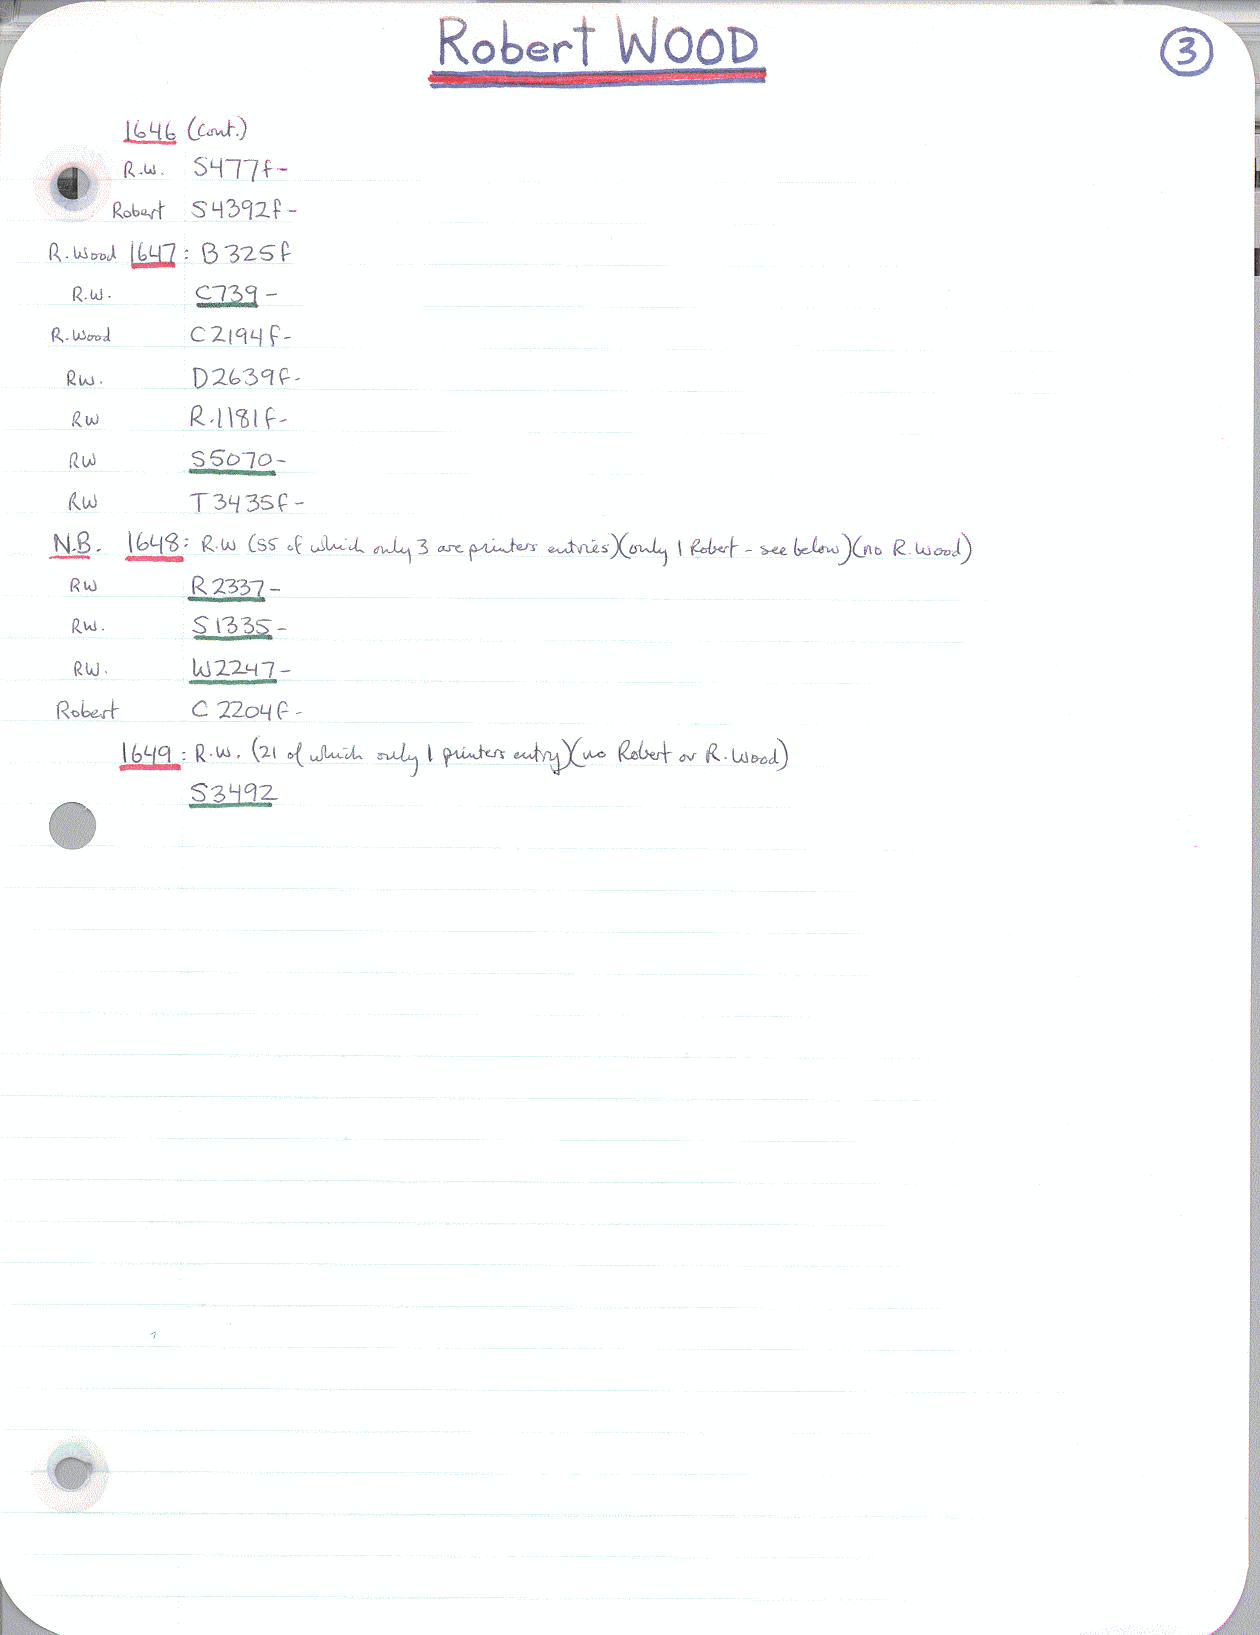 Robert WOOD
3
1646 (Cont.)
R.W. S477f-
Robert S4392f-
R.Wood 1647: B325f
R.W. C739-
R.Wood C2194f-
RW. D2639f-
RW R.1181f-
RW S5070-
RW T3435f-
N.B. 1648: R.W (55 of which only 3 are printers entries)(only 1 Robert - see below)(no R.Wood)
RW R2337-
RW. S1335-
RW. W2247-
Robert C2204f-
1649: R.W. (21 of which only 1 printers entry)(no Robert or R.Wood)
S3492